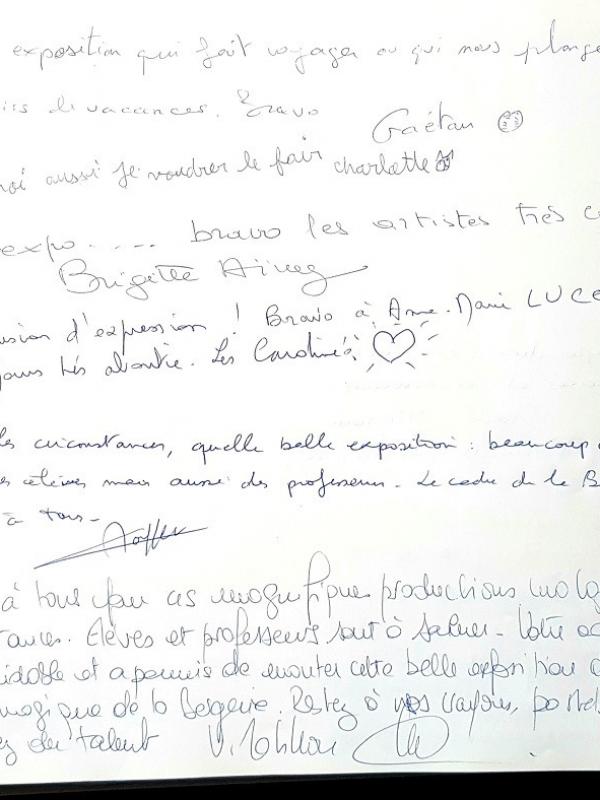 exposition qui fait voyager ou qui nous plonge
de vacances. Bravo
Gaétan
moi aussi je voudrer le fair charlotte
expo..... bravo les artistes très
Brigitte
d'expression ! Bravo à Anne-Marie LUCE
Les Caroline's
les circonstances, quelle belle exposition : beaucoup
élèves mais aussi des professeurs. Le cadre de la B
à tous-
à tous pour ces magnifiques productions
Elèves et professeurs sont à saluer. Votre
et a permis de monter cette belle exposition
magique de la Bergerie. Restez à vos crayons, pastel
du talent